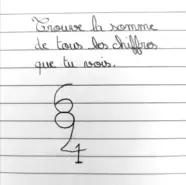 Trouve la somme
de tous les chiffres
que tu vois.
6
8
9
4